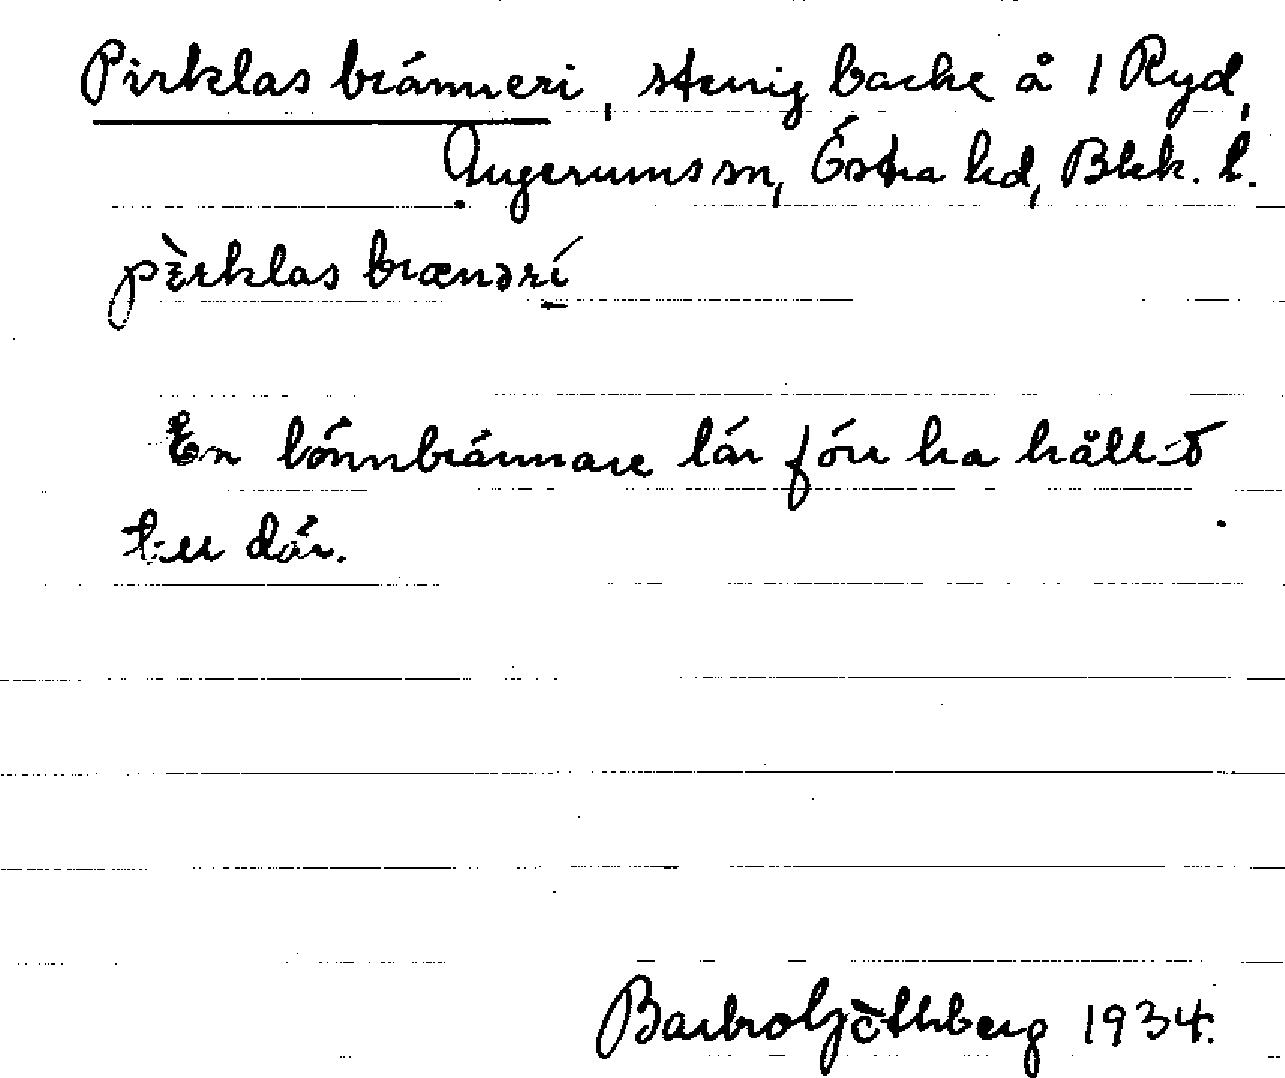 Pirklas bränneri, stenig backe å 1 Ryd,
Augerums sn, Östra hd, Blek. l.
pèrklas brænərí
En lönnbrännare lär förr ha hållit
till där.
Barbro Göthberg 1934.